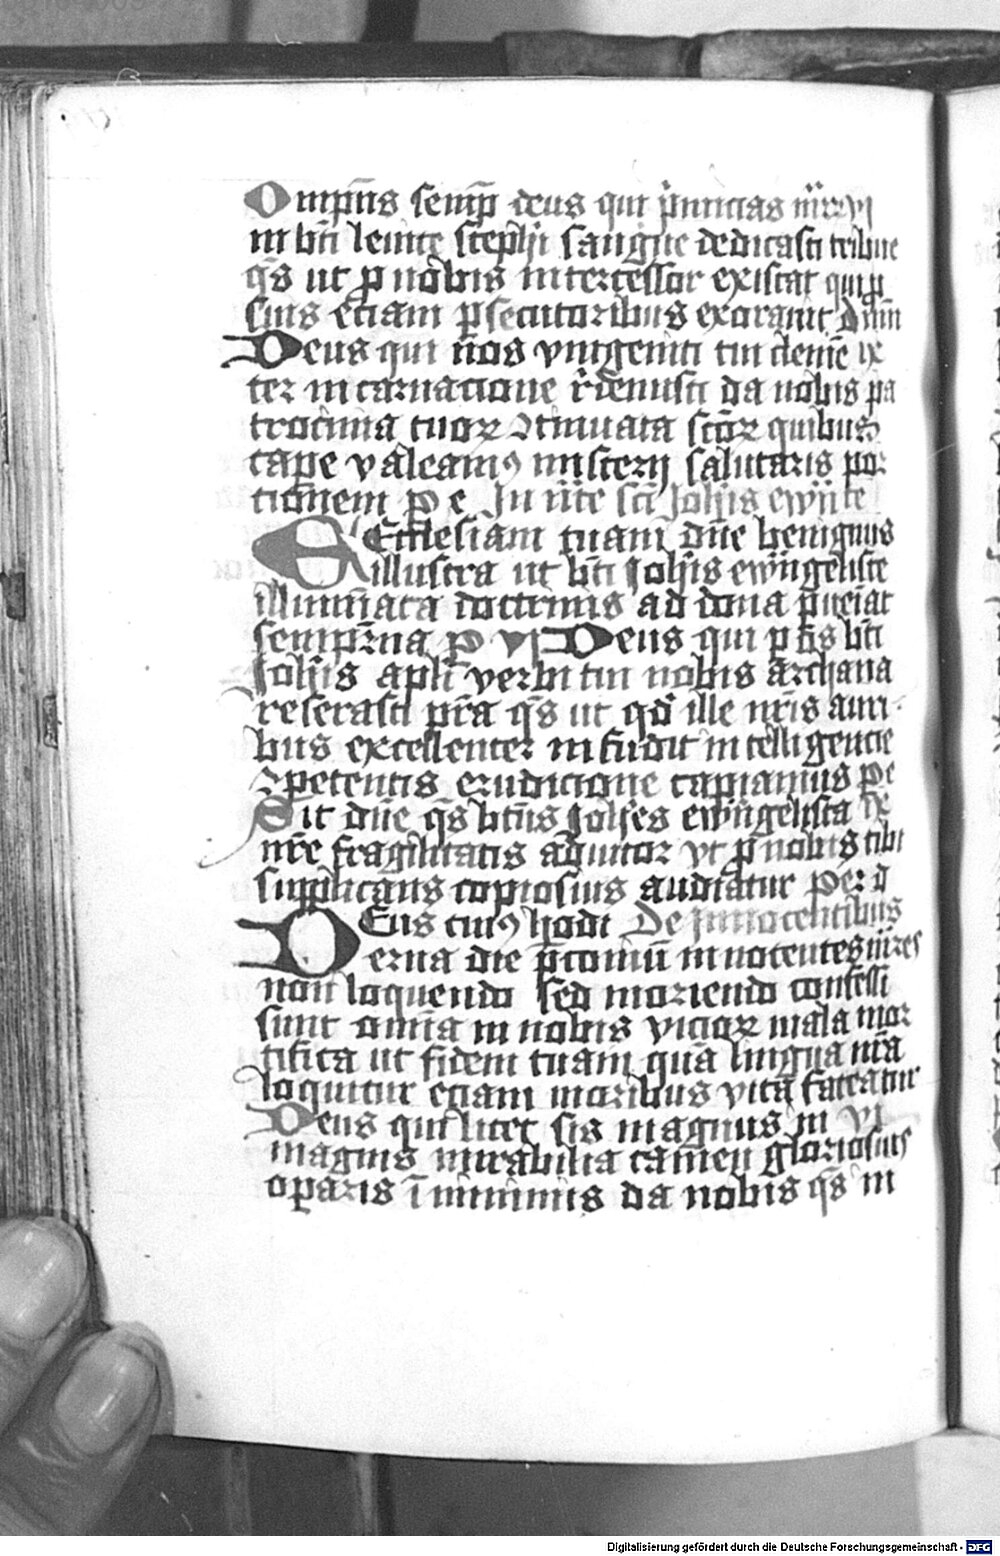 Omp̄ns semp̄ deus qui p̄micias mr̄rꝝ
in bti̅ leuite steph̅i sangu̅ne dedicasti tribue
qs̄ ut ꝓ nobis intercessor existat qui ꝓ
suis eciam ꝑsecutoribus exorauit dn̄m
Deus qui nos vnigeniti tui cleme̅
ter in carnacione r̄demisti da nobis pa
trocinia tuoꝝ ꝯtinuata sc̄oꝝ quibus
cape valeamꝰ misterij salutaris por
tionem ꝑ e In nt̄e sc̄i Joh̄is ewn̄te
Ecc̄lesiam tuam dn̄e benignus
illustra ut bt̄i Joh̄is ewn̄geliste
illuminata doctrinis ad dona ꝑueiat
sempit̄na ꝑ Deus qui ꝑ os bt̄i
Joh̄is apl̄i verbi tui nobis archana
reserasti pr̄a qs̄ ut qd̄ ille nr̄is auri
bus excellenter infudit intelligencie
ꝯpetentis erudicione capiamus ꝑ e
Sit dn̄e qs̄ btū̄s Joh̄es ewn̄gelista
nr̄e fragilitatis adiutor vt ꝓ nobis tibi
supplicans copiosius audiatur ꝑ e d
DEus cuiꝰ hodi De Innocentibus
erna die p̄coniu̅ innocentes mr̄res
non loquendo sed moriendo confessi
sunt omia̅ in nobis vicioꝝ mala mor
tifica ut fidem tuam qua̅ lingua nr̄a
loquitur eciam moribus vita̅ fateatur
Deus qui licet sis magnus in
magnis mirabilia tamen gloriosius
oparis i̅ minimis da nobis qs̄ in
Digitalisierung gefördert durch die Deutsche Forschungsgemeinschaft - DFG